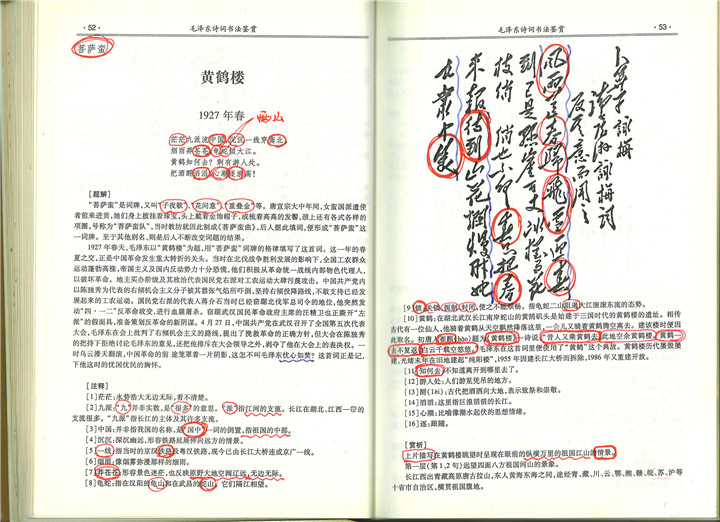 · 52 ·
毛泽东诗词书法鉴赏
菩萨蛮
黄鹤楼
1927 年春
茫茫九派流中国，沉沉一线穿南北。
烟雨莽苍苍，龟蛇锁大江。
黄鹤知何去？剩有游人处。
把酒酹滔滔，心潮逐浪高！
［题解］
“菩萨蛮”是词牌，又叫“子夜歌”、“花间意”、“重叠金”等。唐宣宗大中年间，女蛮国派遣使
者前来进贡，她们身上披挂着珠宝，头上戴着金饰帽子，或梳着高高的发髻，头上还有各式各样的
项圈，号称为“菩萨蛮队”，当时教坊就因此制成《菩萨蛮曲》，后人据此填词，便形成“菩萨蛮”这
一词牌。至于其他别名，则是后人不断改变词题的结果。
1927 年春天，毛泽东以“黄鹤楼”为题，用“菩萨蛮”词牌的格律填写了这首词。这一年的春
夏之交，正是中国革命发生重大转折的关头。当时在北伐战争胜利发展的影响下，全国工农群众
运动蓬勃高涨，帝国主义及国内反动势力十分恐慌，他们积极从革命统一战线内部物色代理人，
以破坏革命。地主买办阶级及其政治代表国民党右派对工农运动大肆污蔑攻击。中国共产党
内以陈独秀为代表的右倾机会主义分子被其嚣张气焰所吓倒，坚持右倾投降路线，不敢支持已经发
展起来的工农运动。国民党右派的代表人蒋介石当时已经窃踞北伐军总司令的地位，他突然发
动“四·一二”反革命政变，进行血腥屠杀。窃踞武汉国民革命政府主席的汪精卫也正撕开“左
派”的假面具，准备策划反革命的新阴谋。4 月 27 日，中国共产党在武汉召开了全国第五次代表
大会，毛泽东在会上批判了右倾机会主义的路线，提出了挽救革命的正确方针，但大会在陈独秀
的把持下拒绝讨论毛泽东的意见，还把他排斥在大会领导之外，剥夺了他在大会上的表决权。一
时乌云漫天翻滚，中国革命的前途笼罩着一片阴影，这怎不叫毛泽东忧心如焚？这首词正是记
下他这时的忧国忧民的胸怀。
［注释］
［1］茫茫：水势浩大无边无际，看不清楚。
［2］九派：“九”并非实数，是“很多”的意思。“派”指江河的支流。长江在湖北、江西一带的
支流很多。“九派流”指长江的主体及其许多支流。
［3］中国：并非指我国的名称，是“国中”一词的倒置，指祖国的中部。
［4］沉沉：深沉幽远，形容铁路延展伸向远方的情景。
［5］一线：指当时的京汉铁路及粤汉铁路，现今已由长江大桥连成京广一线。
［6］烟雨：像烟雾弥漫那样的细雨。
［7］莽苍苍：形容景色迷茫，也反映原野大地空阔辽远，无边无际。
［8］龟蛇：指在汉阳的龟山和在武昌的蛇山，它们隔江相望。
毛泽东诗词书法鉴赏
· 53 ·
卜算子 咏梅
读陆游咏梅词
反其意而用之
风雨送春归 飞雪迎春
到 已是悬崖百丈冰 犹有花
枝俏 俏也不争春 只把春
来报 待到山花烂熳时 她
在丛中笑
［10］黄鹤：在湖北武汉长江南岸蛇山的黄鹤矶头是始建于三国时代的黄鹤楼的遗址。相传
古代有一位仙人，他骑着黄鹤从天空飘然降落这里，一会儿又骑着黄鹤腾空离去。建筑楼时便因
此取名。初唐人崔颢(hào)题为《黄鹤楼》一诗说：“昔人又乘黄鹤去，此地空余黄鹤楼。黄鹤一
去不复返，白云千载空悠悠。”毛泽东在这首词里便使用了“黄鹤”这个典故。黄鹤楼历代屡毁屡
建，元清末年在旧地建起“纯阳楼”，1955 年因建长江大桥而拆除，1986 年又重建开放。
［11］知何去：不知道离开到哪里去了。
［12］游人处：人们游览凭吊的地方。
［13］酹(lèi)：古代把酒洒向大地，表示致祭和崇敬。
［14］滔滔：这里指狂浪滔滔的长江。
［15］心潮：比喻像潮水起伏的思想感情。
［16］逐：跟随。
［赏析］
上片描写在黄鹤楼眺望时呈现在眼前的纵横万里的祖国江山的情景。
第一层(第 1、2 句)远望四面八方祖国河山的景象。
长江西出青藏高原唐古拉山，东入黄海东海之间，途经青、藏、川、云、鄂、湘、赣、皖、苏、沪等
十省市自治区，横贯祖国腹地。